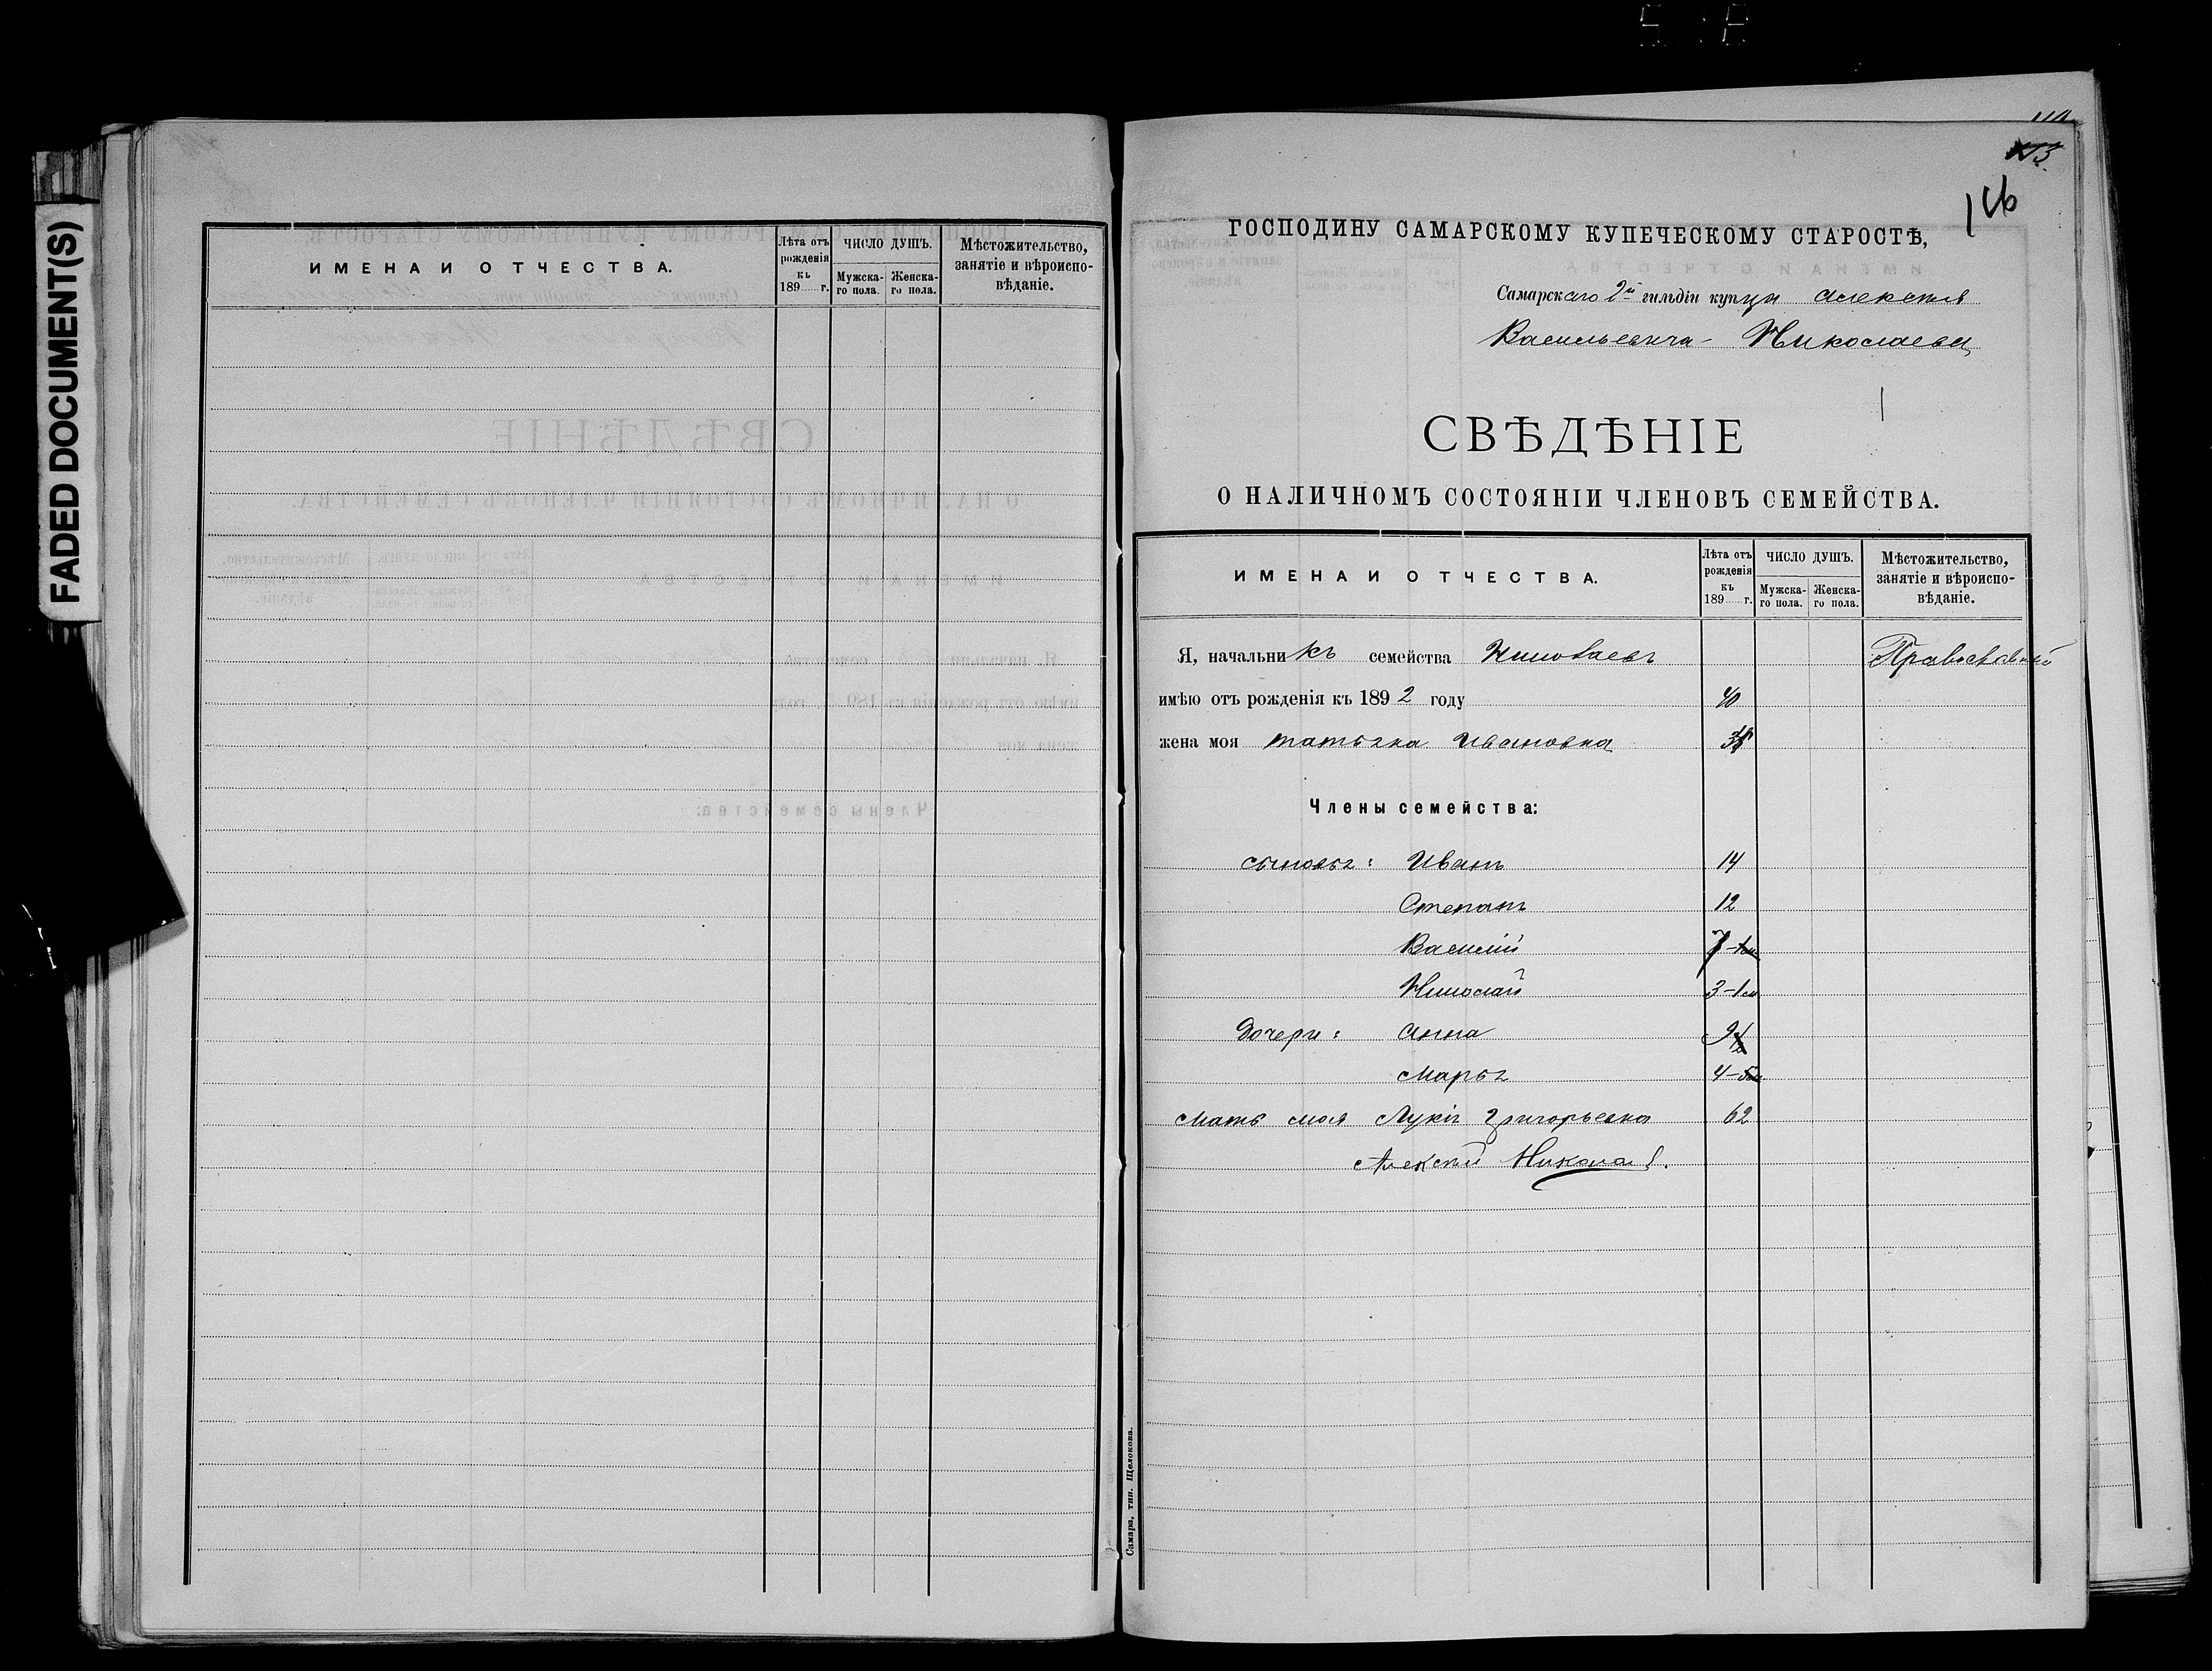 FADED DOCUMENT(S)
ИМЕНА И ОТЧЕСТВА.
Лѣта отъ рожденія къ 189 г.
ЧИСЛО ДУШЪ.
Мужска-го пола.
Женска-го пола.
Мѣстожительство, занятіе и вѣроиспо-вѣданіе.
113.
ГОСПОДИНУ САМАРСКОМУ КУПЕЧЕСКОМУ СТАРОСТѢ,
Самарскаго 2й гильдіи купца Алексѣя
Васильевича Николаева
СВѢДѢНІЕ
О НАЛИЧНОМЪ СОСТОЯНІИ ЧЛЕНОВЪ СЕМЕЙСТВА.
ИМЕНА И ОТЧЕСТВА.
Лѣта отъ рожденія къ 189 г.
ЧИСЛО ДУШЪ.
Мужска-го пола.
Женска-го пола.
Мѣстожительство, занятіе и вѣроиспо-вѣданіе.
Я, начальникъ семейства Николаевъ Православный
имѣю отъ рожденія къ 1892 году 40
жена моя татьяна Ивановна
Члены семейства:
сыновья: Иванъ 14
Степанъ 12
Василій 7
Николай 3-1м
Дочери: Анна 9
Марья 4
Мать моя Лукія Григорьевна 62
Алексѣй Николаев.
Самара, тип. Щелокова.